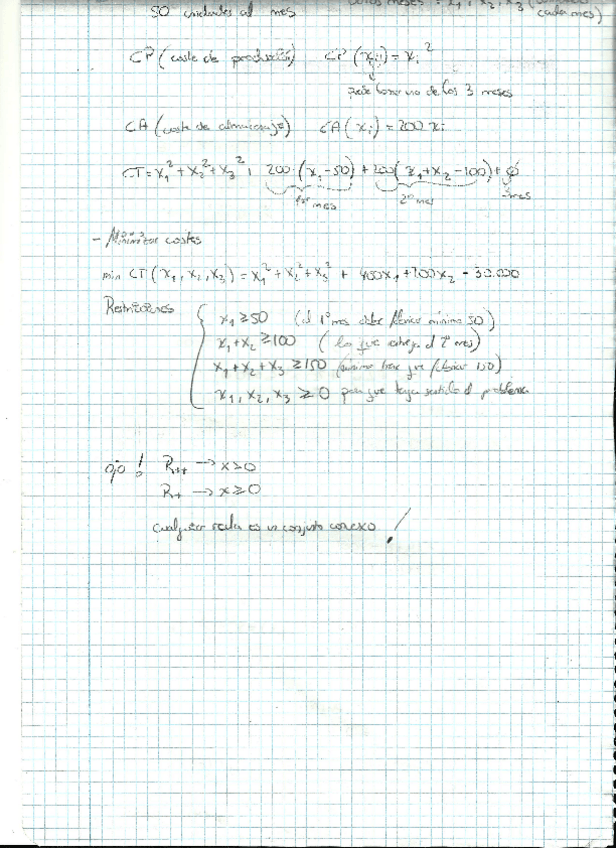 cada mes = x1, x2, x3 (
cada mes)
50 unidades al mes
CP (coste de producción) CP (xi) = xi²
puede tomar uno de los 3 meses
CA (coste de almacenaje) CA (xi) = 200 xi
CT = x1² + x2² + x3² + 200 (x1 - 50) + 200 (x1 + x2 - 100) + ø
1er mes 2º mes 3 mes
- Minimizar costes
min CT (x1, x2, x3) = x1² + x2² + x3² + 400x1 + 200x2 - 30.000
Restricciones
x1 ≥ 50 (el 1º mes debe fabricar mínimo 50)
x1 + x2 ≥ 100 (los que entrega el 2º mes)
x1 + x2 + x3 ≥ 150 (mínimo tiene que fabricar 150)
x1, x2, x3 ≥ 0 para que tenga sentido el problema
ojo! R++ → x > 0
R+ → x ≥ 0
cualquier recta es un conjunto convexo!